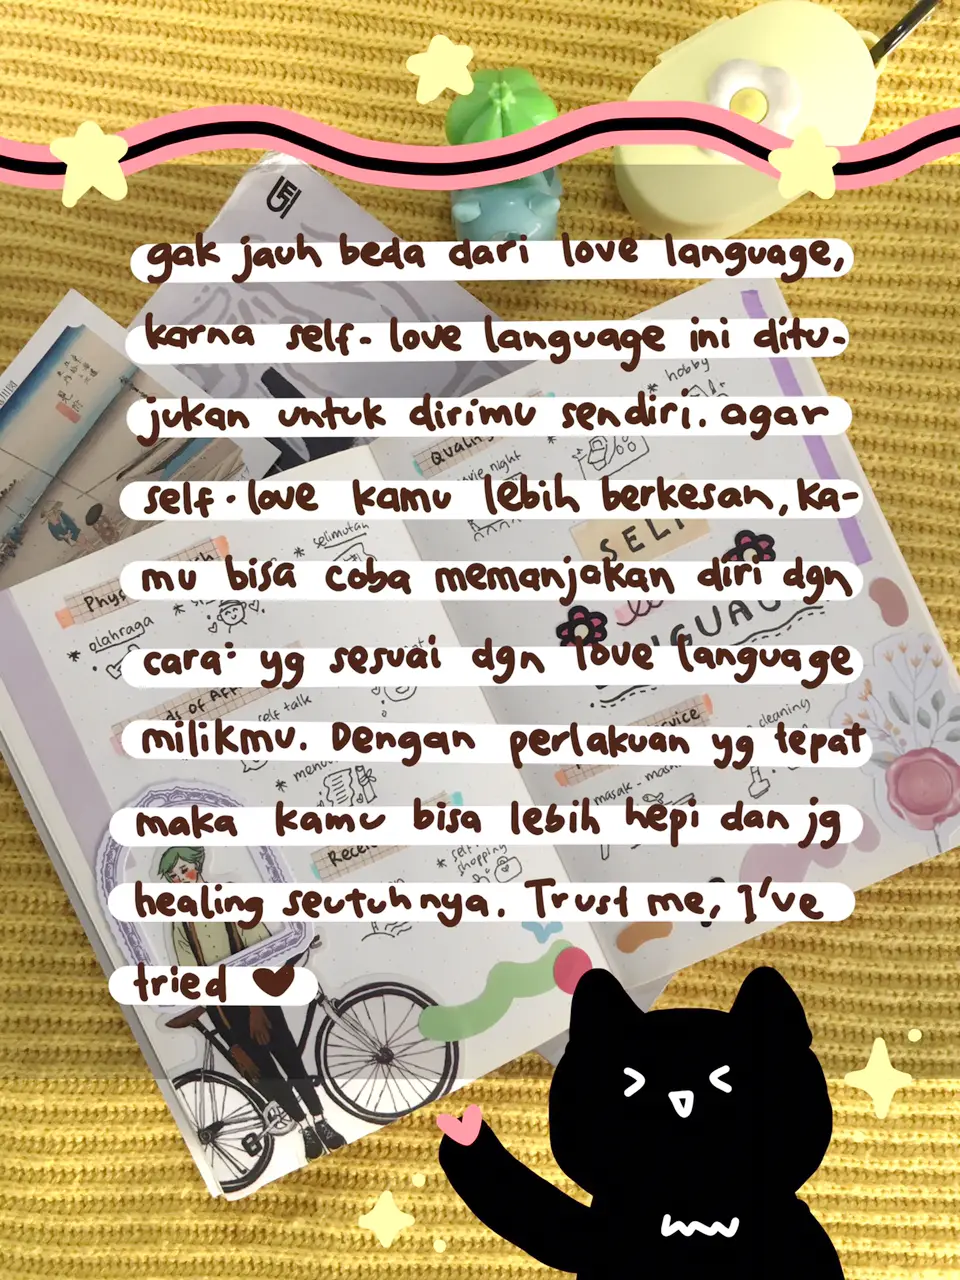 gak jauh beda dari love language,
karna self-love language ini ditu-
jukan untuk dirimu sendiri. agar
self-love kamu lebih berkesan, ka-
mu bisa coba memanjakan diri dgn
cara² yg sesuai dgn love language
milikmu. Dengan perlakuan yg tepat
maka kamu bisa lebih hepi dan jg
healing seutuhnya. Trust me, I've
tried
* hobby
movie night
* selimutan
* olahraga
self talk
cleaning
masak-
* self
shopping